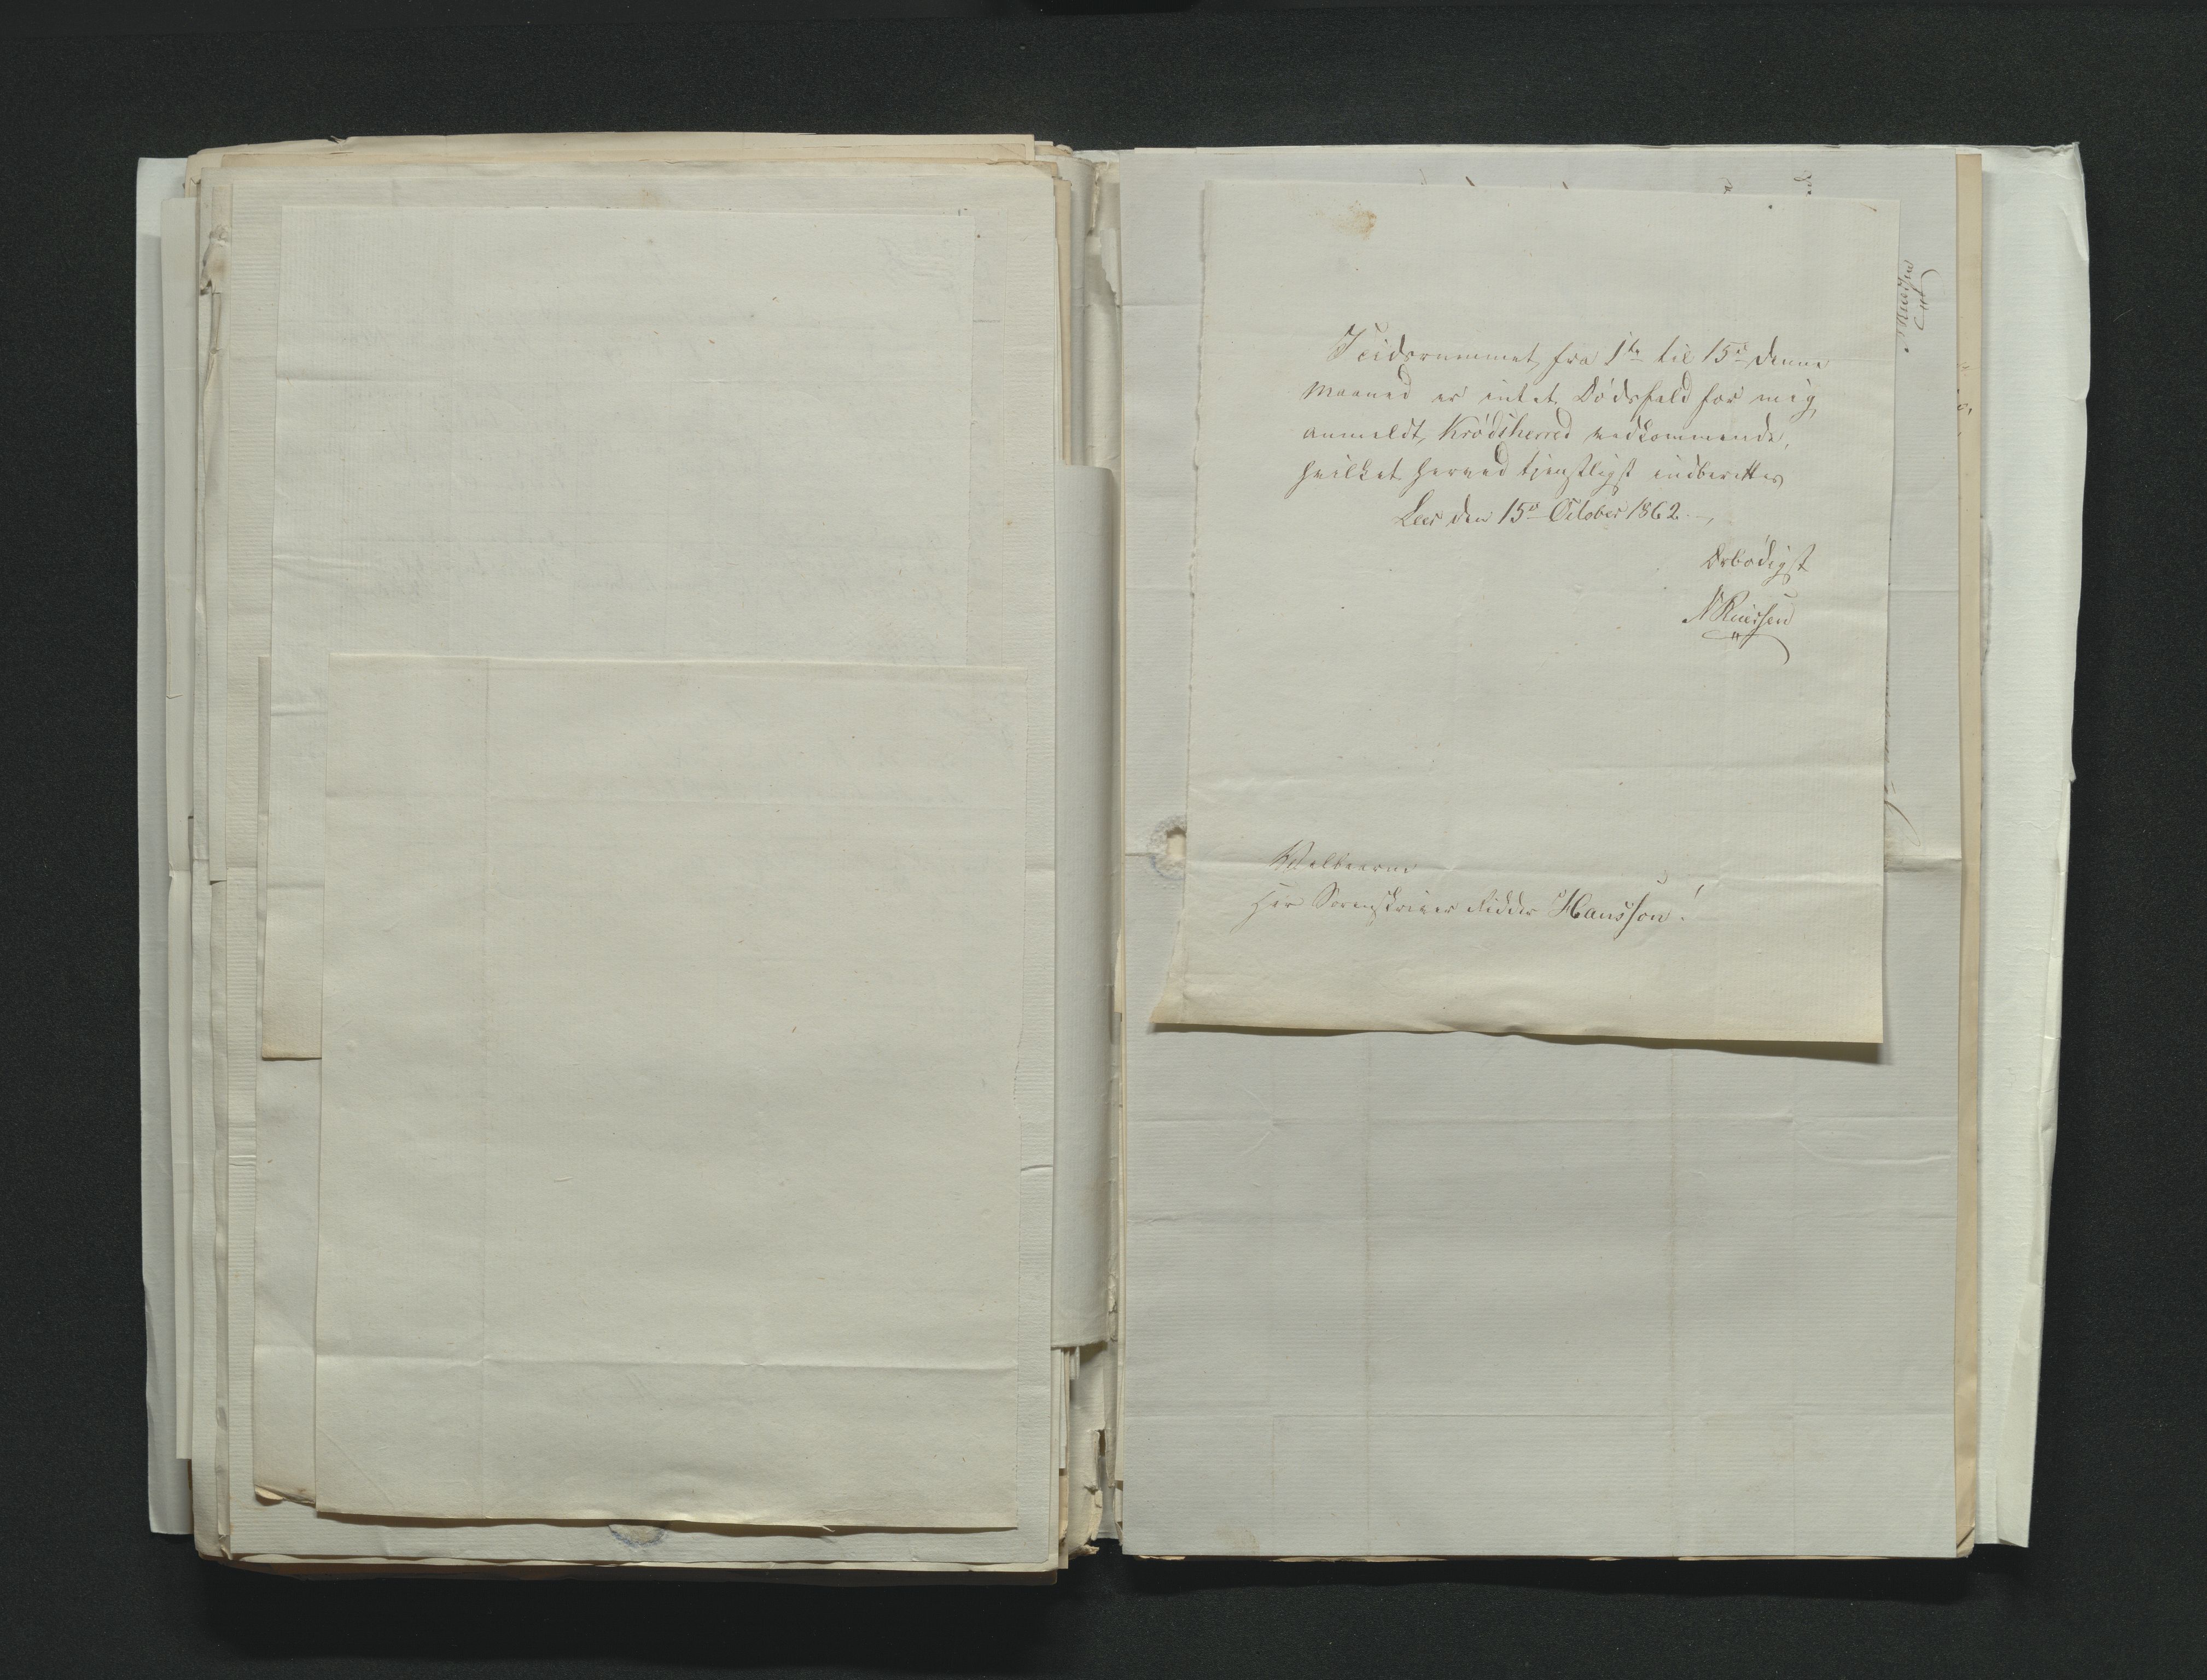 I Tidsrummet fra 1ste til 15de denne
Maaned er intet Dødsfald for mig
anmeldt, Krødsherred vedkommende,
hvilket herved tjenstligst indberettes
Leer den 15de October 1862.
Ærbødigst
N Ruersen
Velbaarne
Herr Sorenskriver Ridder Hansson!